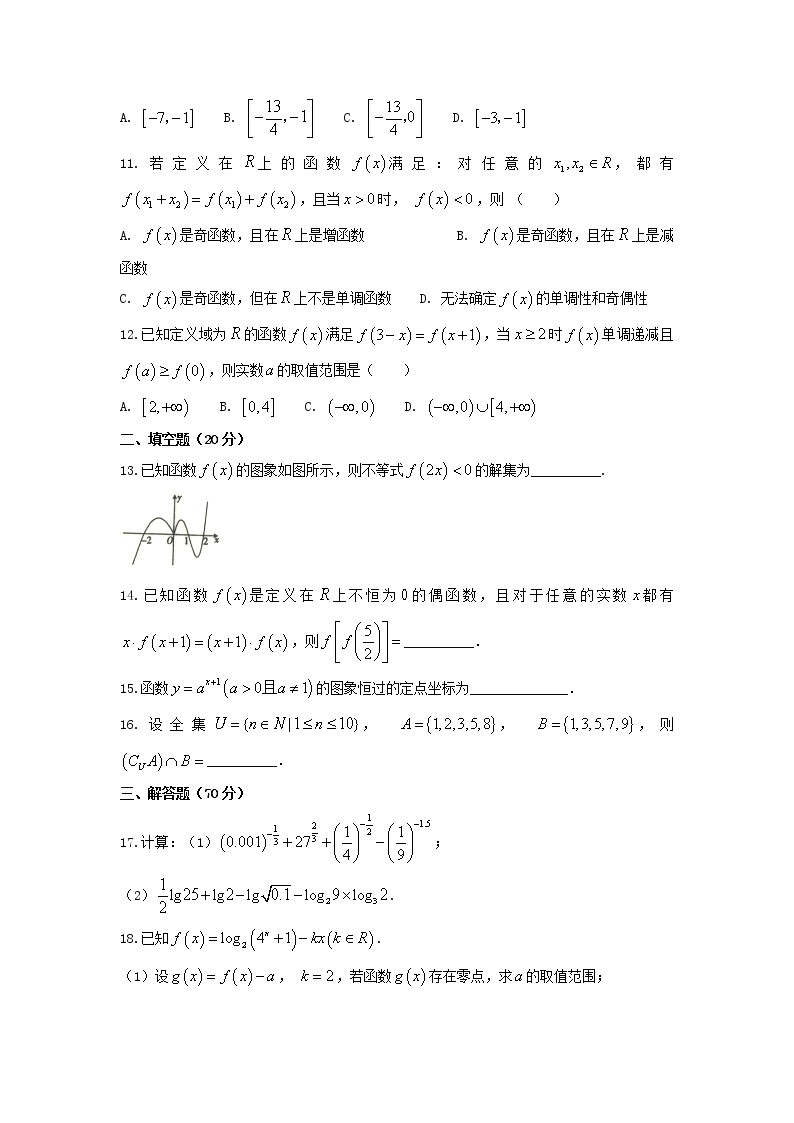 A. [-7,-1] B. [-13/4,-1] C. [-13/4,0] D. [-3,-1]
11.若定义在R上的函数f(x)满足:对任意的x₁,x₂∈R,都有
f(x₁+x₂)=f(x₁)+f(x₂),且当x>0时, f(x)<0,则 ( )
A. f(x)是奇函数,且在R上是增函数 B. f(x)是奇函数,且在R上是减
函数
C. f(x)是奇函数,但在R上不是单调函数 D. 无法确定f(x)的单调性和奇偶性
12.已知定义域为R的函数f(x)满足f(3-x)=f(x+1),当x≥2时f(x)单调递减且
f(a)≥f(0),则实数a的取值范围是( )
A. [2,+∞) B. [0,4] C. (-∞,0) D. (-∞,0)∪[4,+∞)
二、填空题(20分)
13.已知函数f(x)的图象如图所示,则不等式f(2x)<0的解集为__________.
y
-2 O 1 2 x
14.已知函数f(x)是定义在R上不恒为0的偶函数,且对于任意的实数x都有
x·f(x+1)=(x+1)·f(x),则f[f(5/2)]=__________.
15.函数y=a^(x+1)(a>0且a≠1)的图象恒过的定点坐标为______________.
16.设全集U={n∈N|1≤n≤10}, A={1,2,3,5,8}, B={1,3,5,7,9},则
(C_U A)∩B=__________.
三、解答题(70分)
17.计算:(1)(0.001)^(-1/3)+27^(2/3)+(1/4)^(-1/2)-(1/9)^(-1.5);
(2)1/2lg25+lg2-lg√0.1-log₂9×log₃2.
18.已知f(x)=log₂(4ˣ+1)-kx(k∈R).
(1)设g(x)=f(x)-a, k=2,若函数g(x)存在零点,求a的取值范围;